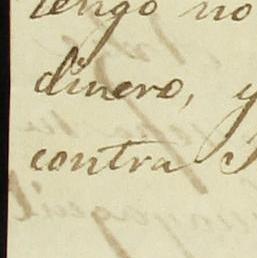 tengo no
dinero, y
contra